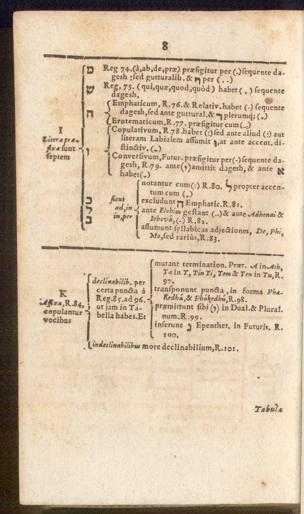 8
מ Reg 74. (à, ab, de, præ) præfigitur per (.) sequente da-
gesh: sed gutturalib. & ה per (..)
ש Reg. 75. (qui, quæ, quod, quòd) habet (..) sequente
dagesh.
ה Emphaticum, R. 76. & Relativ. habet (-) sequente
dagesh, sed ante guttural. & ה plerumq;
Erotematicum, R. 77. præfigitur cum (..)
ו Copulativum, R. 78. habet (:) sed ante aliud (:) aut
literam Labialem assumit ו, at ante accent. di-
stinctiv.
Conversivum, Futur. præfigitur per (-) sequente da-
gesh, R. 79. ante (י) amittit dagesh, & ante א
habet
I
Literæ præ-
fixæ sunt
septem
כ
ל
ב
sicut
ad, in
in, per
notantur cum (:) R. 80. ל propter accen-
tum cum
excludunt ה Emphatic. R. 81.
ante Elohim gestant (..) & ante Adhonai &
Iehová, (-) R. 82.
assumunt syllabicas adjectiones, De, Phi,
Mo, sed rariùs, R. 83.
K
Affixa, R. 84.
copulantur
vocibus
declinabilib. per
certa puncta à
Reg. 85. ad 96.
ut jam in Ta-
bella habes. Et
mutant termination. Præt. A in Ath,
Ta in T, Tin Ti, Tem & Ten in Tu, R.
97.
transponunt puncta, in forma Pha-
Kedhú, & Phúkedhú, R. 98.
præmittunt sibi (י) in Dual. & Plural.
num, R. 99.
inserunt נ Epenthet. in Futuris. R.
100.
indeclinabilibus more declinabilium, R. 101.
Tabula